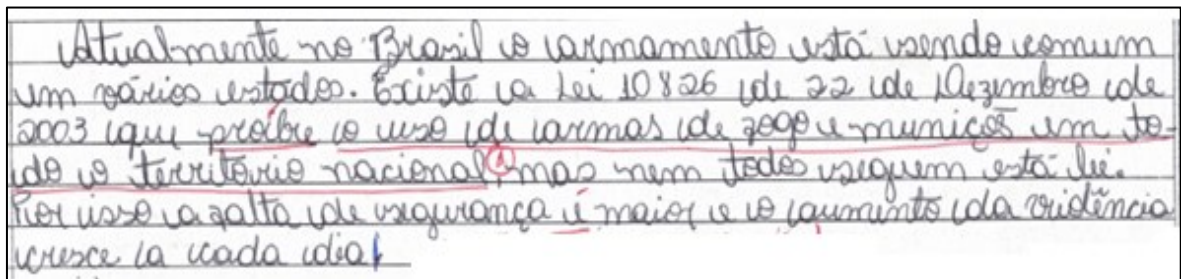 Atualmente no Brasil o armamento está sendo comum
em vários estados. Existe a Lei 10826 de 22 de Dezembro de
2003 que proibe o uso de armas de fogo e municões em to-
do o território nacional, mas nem todos seguem está lei.
Por isso a falta de segurança é maior e o aumento da violência
cresce a cada dia.